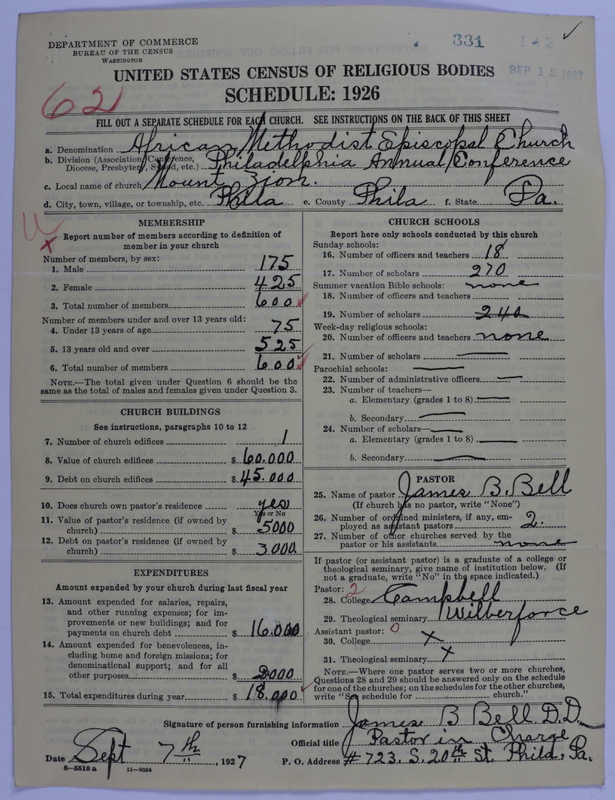 DEPARTMENT OF COMMERCE
BUREAU OF THE CENSUS
WASHINGTON
331 142
SEP 12 1927
UNITED STATES CENSUS OF RELIGIOUS BODIES
SCHEDULE: 1926
62
FILL OUT A SEPARATE SCHEDULE FOR EACH CHURCH. SEE INSTRUCTIONS ON THE BACK OF THIS SHEET
a. Denomination African Methodist Episcopal Church
b. Division (Association, Conference, Diocese, Presbytery, Synod, etc.) Philadelphia Annual Conference
c. Local name of church Mount Zion.
d. City, town, village, or township, etc. Phila e. County Phila f. State Pa.
MEMBERSHIP
Report number of members according to definition of
member in your church
Number of members, by sex:
1. Male 175
2. Female 425
3. Total number of members 600
Number of members under and over 13 years old:
4. Under 13 years of age 75
5. 13 years old and over 525
6. Total number of members 600
NOTE.—The total given under Question 6 should be
same as the total of males and females given under Question 3.
CHURCH BUILDINGS
See instructions, paragraphs 10 to 12
7. Number of church edifices 1
8. Value of church edifices $ 60.000
9. Debt on church edifices $ 45.000
10. Does church own pastor's residence yes
Yes or No
11. Value of pastor's residence (if owned by
church) $ 5000
12. Debt on pastor's residence (if owned by
church) $ 3000
EXPENDITURES
Amount expended by your church during last fiscal year
13. Amount expended for salaries, repairs,
and other running expenses; for im-
provements or new buildings; and for
payments on church debt $ 16.000
14. Amount expended for benevolences, in-
cluding home and foreign missions; for
denominational support; and for all
other purposes $ 2000
15. Total expenditures during year $ 18.000
CHURCH SCHOOLS
Report here only schools conducted by this church
Sunday schools:
16. Number of officers and teachers 18
17. Number of scholars 270
Summer vacation Bible schools: none
18. Number of officers and teachers
19. Number of scholars 240
Week-day religious schools:
20. Number of officers and teachers none
21. Number of scholars
Parochial schools:
22. Number of administrative officers
23. Number of teachers—
a. Elementary (grades 1 to 8)
b. Secondary
24. Number of scholars—
a. Elementary (grades 1 to 8)
b. Secondary
PASTOR
25. Name of pastor James B. Bell
(If church has no pastor, write "None")
26. Number of ordained ministers, if any, em-
ployed as assistant pastors 2.
27. Number of other churches served by the
pastor or his assistants none
If pastor (or assistant pastor) is a graduate of a college or
theological seminary, give name of institution below. (If
not a graduate, write "No" in the space indicated.)
Pastor: 2
28. College Campbell
29. Theological seminary Wilberforce
Assistant pastor: 0
30. College x
31. Theological seminary x
NOTE.—Where one pastor serves two or more churches,
Questions 28 and 29 should be answered only on the schedule
for one of the churches; on the schedules for the other churches,
write "See schedule for church."
Signature of person furnishing information James B Bell D.D.
Official title Pastor in Charge
Date Sept 7th, 1927 P. O. Address # 723. S. 20th St. Phila, Pa.
6—5518 a 11—9034